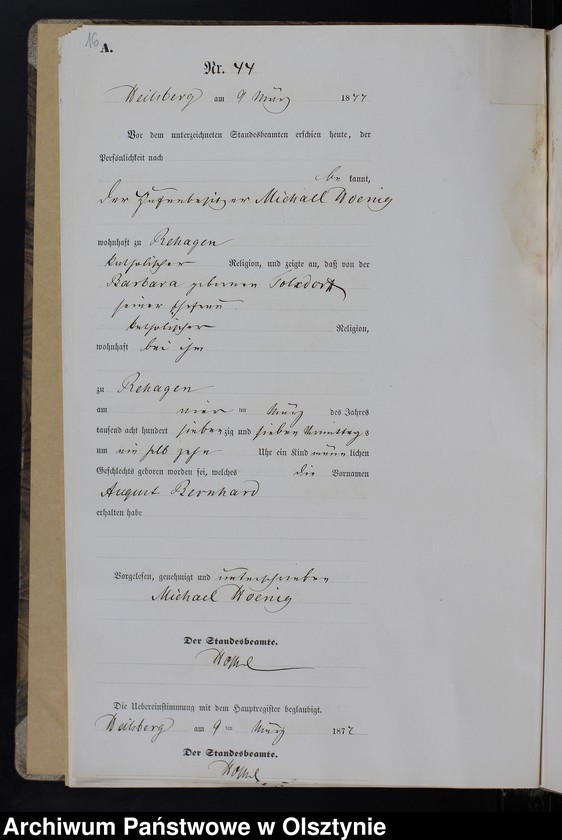 16
A.
Nr. 44
Heilsberg am 9 März 1877
Vor dem unterzeichneten Standesbeamten erschien heute, der
Persönlichkeit nach
be kannt,
der Hufenbesitzer Michael Hoenig
wohnhaft zu Rehagen
katholischer Religion, und zeigte an, daß von der
Barbara geborenen Tolxdorf
seiner Ehefrau
katholischer Religion,
wohnhaft bei ihm
zu Rehagen
am vier ten März des Jahres
tausend acht hundert siebenzig und sieben Vormittags
um ein halb zehn Uhr ein Kind männlichen
Geschlechts geboren worden sei, welches die Vornamen
August Bernhard
erhalten habe
Vorgelesen, genehmigt und unterschrieben
Michael Hoenig
Der Standesbeamte.
Die Uebereinstimmung mit dem Hauptregister beglaubigt.
Heilsberg am 9 ten März 1877
Der Standesbeamte.
Archiwum Państwowe w Olsztynie